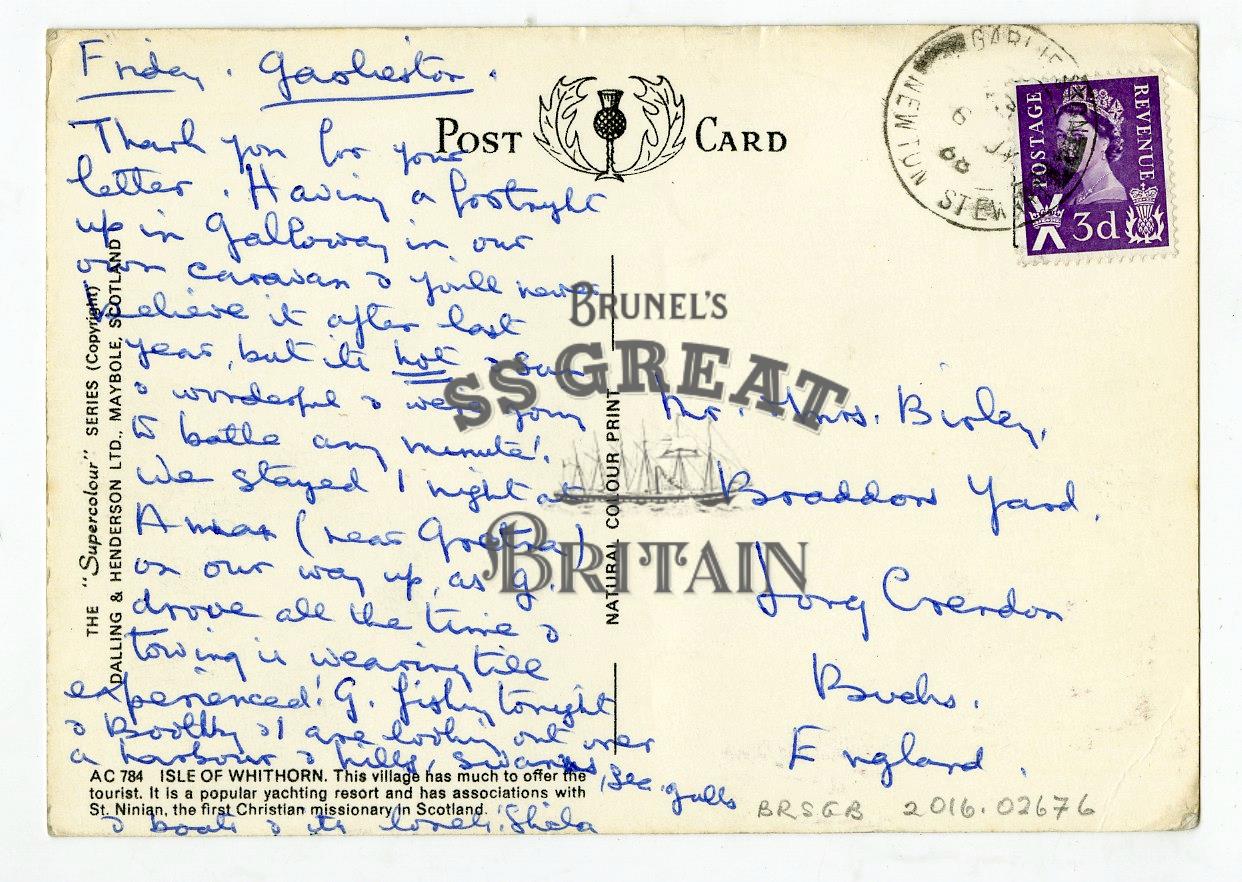 Friday. Garlieston.
Thank you for your
letter. Having a fortnight
up in Galloway in our
own caravan & you'll never
believe it after last
year, but its hot &
& wonderful & we're going
to bathe any minute!
We stayed 1 night at
Annan (near Gretna)
on our way up, as G.
drove all the time &
towing is wearing till
experienced! G. fishing tonight
& Boothby & I are looking out over
a harbour & hills, swans, sea gulls
& boats & its lovely. Shiela
POST CARD
THE "Supercolour" SERIES (Copyright)
DALLING & HENDERSON LTD., MAYBOLE, SCOTLAND
NATURAL COLOUR PRINT
AC 784 ISLE OF WHITHORN. This village has much to offer the
tourist. It is a popular yachting resort and has associations with
St. Ninian, the first Christian missionary in Scotland.
NEWTON STEW
POSTAGE REVENUE
3d
BRUNEL'S
SS GREAT
BRITAIN
Mr. Mrs. Birley,
Braddon Yard,
Long Crendon
Bucks.
England.
BRSGB 2016.02676